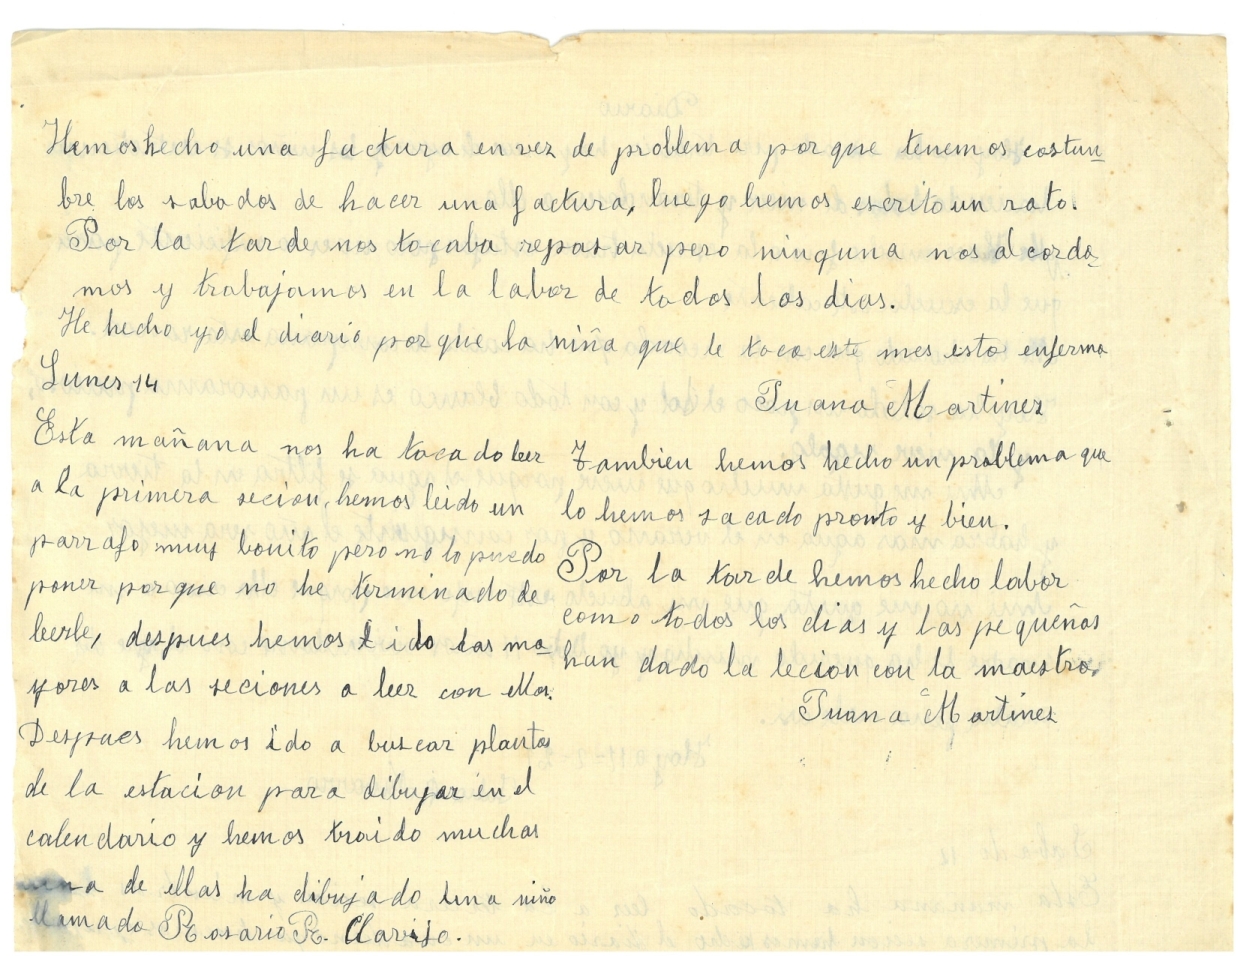 Hemos hecho una factura en vez de problema porque tenemos costun-
bre los sabados de hacer una factura, luego hemos escrito un rato.
Por la tarde nos tocaba repasar pero ninguna nos alcorda-
mos y trabajamos en la labor de todos los dias.
He hecho yo el diario porque la niña que le toca este mes esta enferma
Juana Martinez
Lunes 14
Esta mañana nos ha tocado leer
a la primera secion, hemos leido un
parrafo muy bonito pero no lo puedo
poner porque no he terminado de
leerle, despues hemos ido las ma-
yores a las seciones a leer con ellas.
Despues hemos ido a buscar plantas
de la estacion para dibujar en el
calendario y hemos traido muchas
una de ellas ha dibujado una niña
llamada Rosario R. Clavijo.
Tambien hemos hecho un problema que
lo hemos sacado pronto y bien.
Por la tarde hemos hecho labor
como todos los dias y las pequeñas
han dado la lecion con la maestra.
Juana Martinez